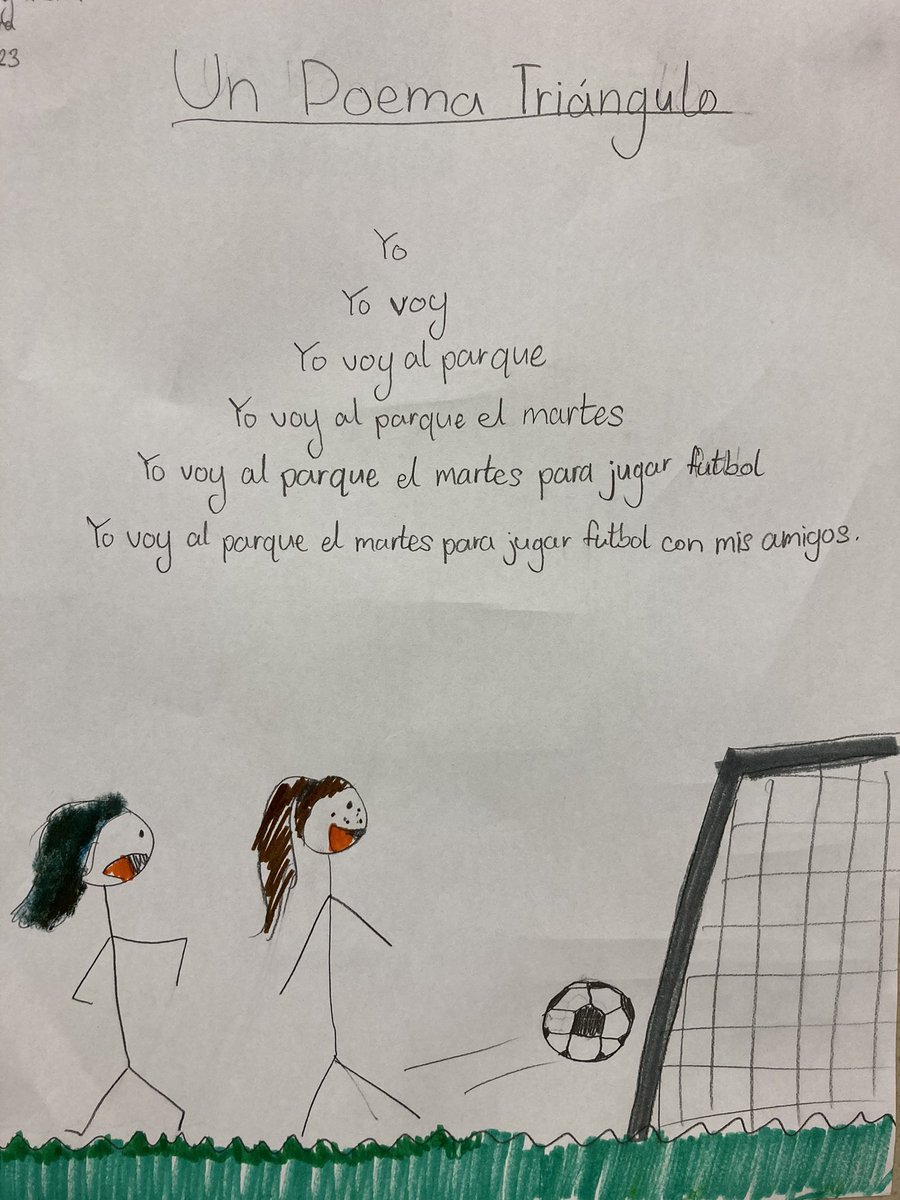 23
Un Poema Triángulo
Yo
Yo voy
Yo voy al parque
Yo voy al parque el martes
Yo voy al parque el martes para jugar futbol
Yo voy al parque el martes para jugar futbol con mis amigos.